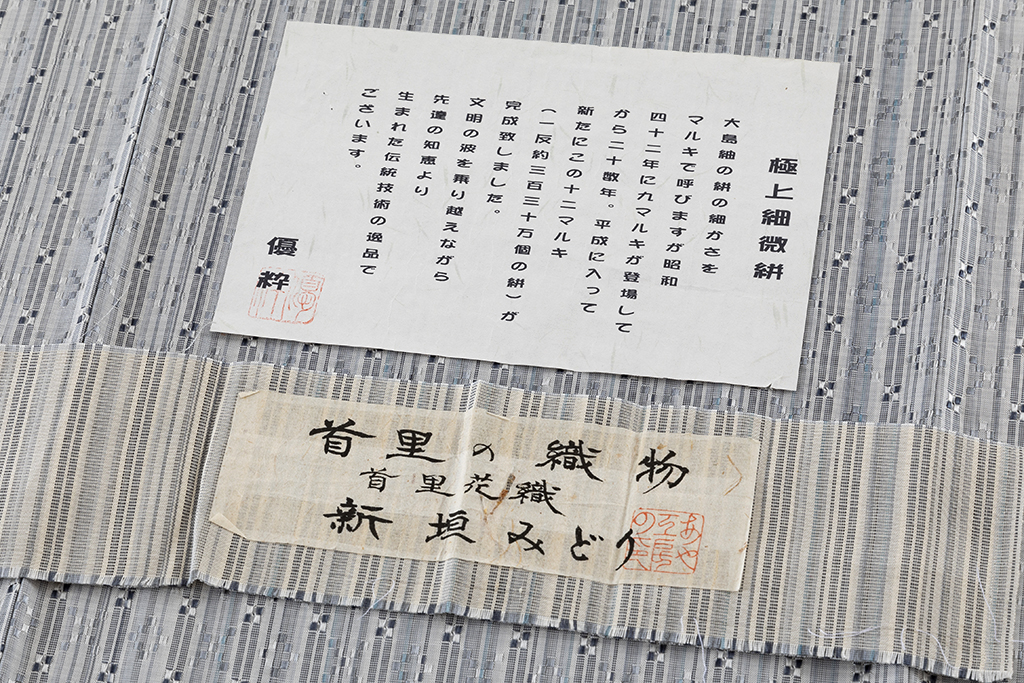 極上細微絣
大島紬の絣の細かさを
マルキで呼びますが昭和
四十二年に九マルキが登場して
から二十数年。平成に入って
新たにこの十二マルキ
(一反約三百三十万個の絣)が
完成致しました。
文明の波を乗り越えながら
先達の知恵より
生まれた伝統技術の逸品で
ございます。
優粋
首里の織物
首里花織
新垣みどり